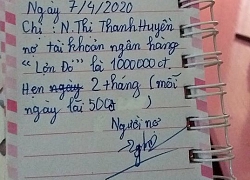 Ngày 7/4/2020
Chị : N.Thị Thanh Huyền
nợ tài khoản ngân hàng
"Lợn Đỏ" là 1000000 đ.
Hẹn ngày 2 tháng (mỗi
ngày lãi 50₫)
Người nợ